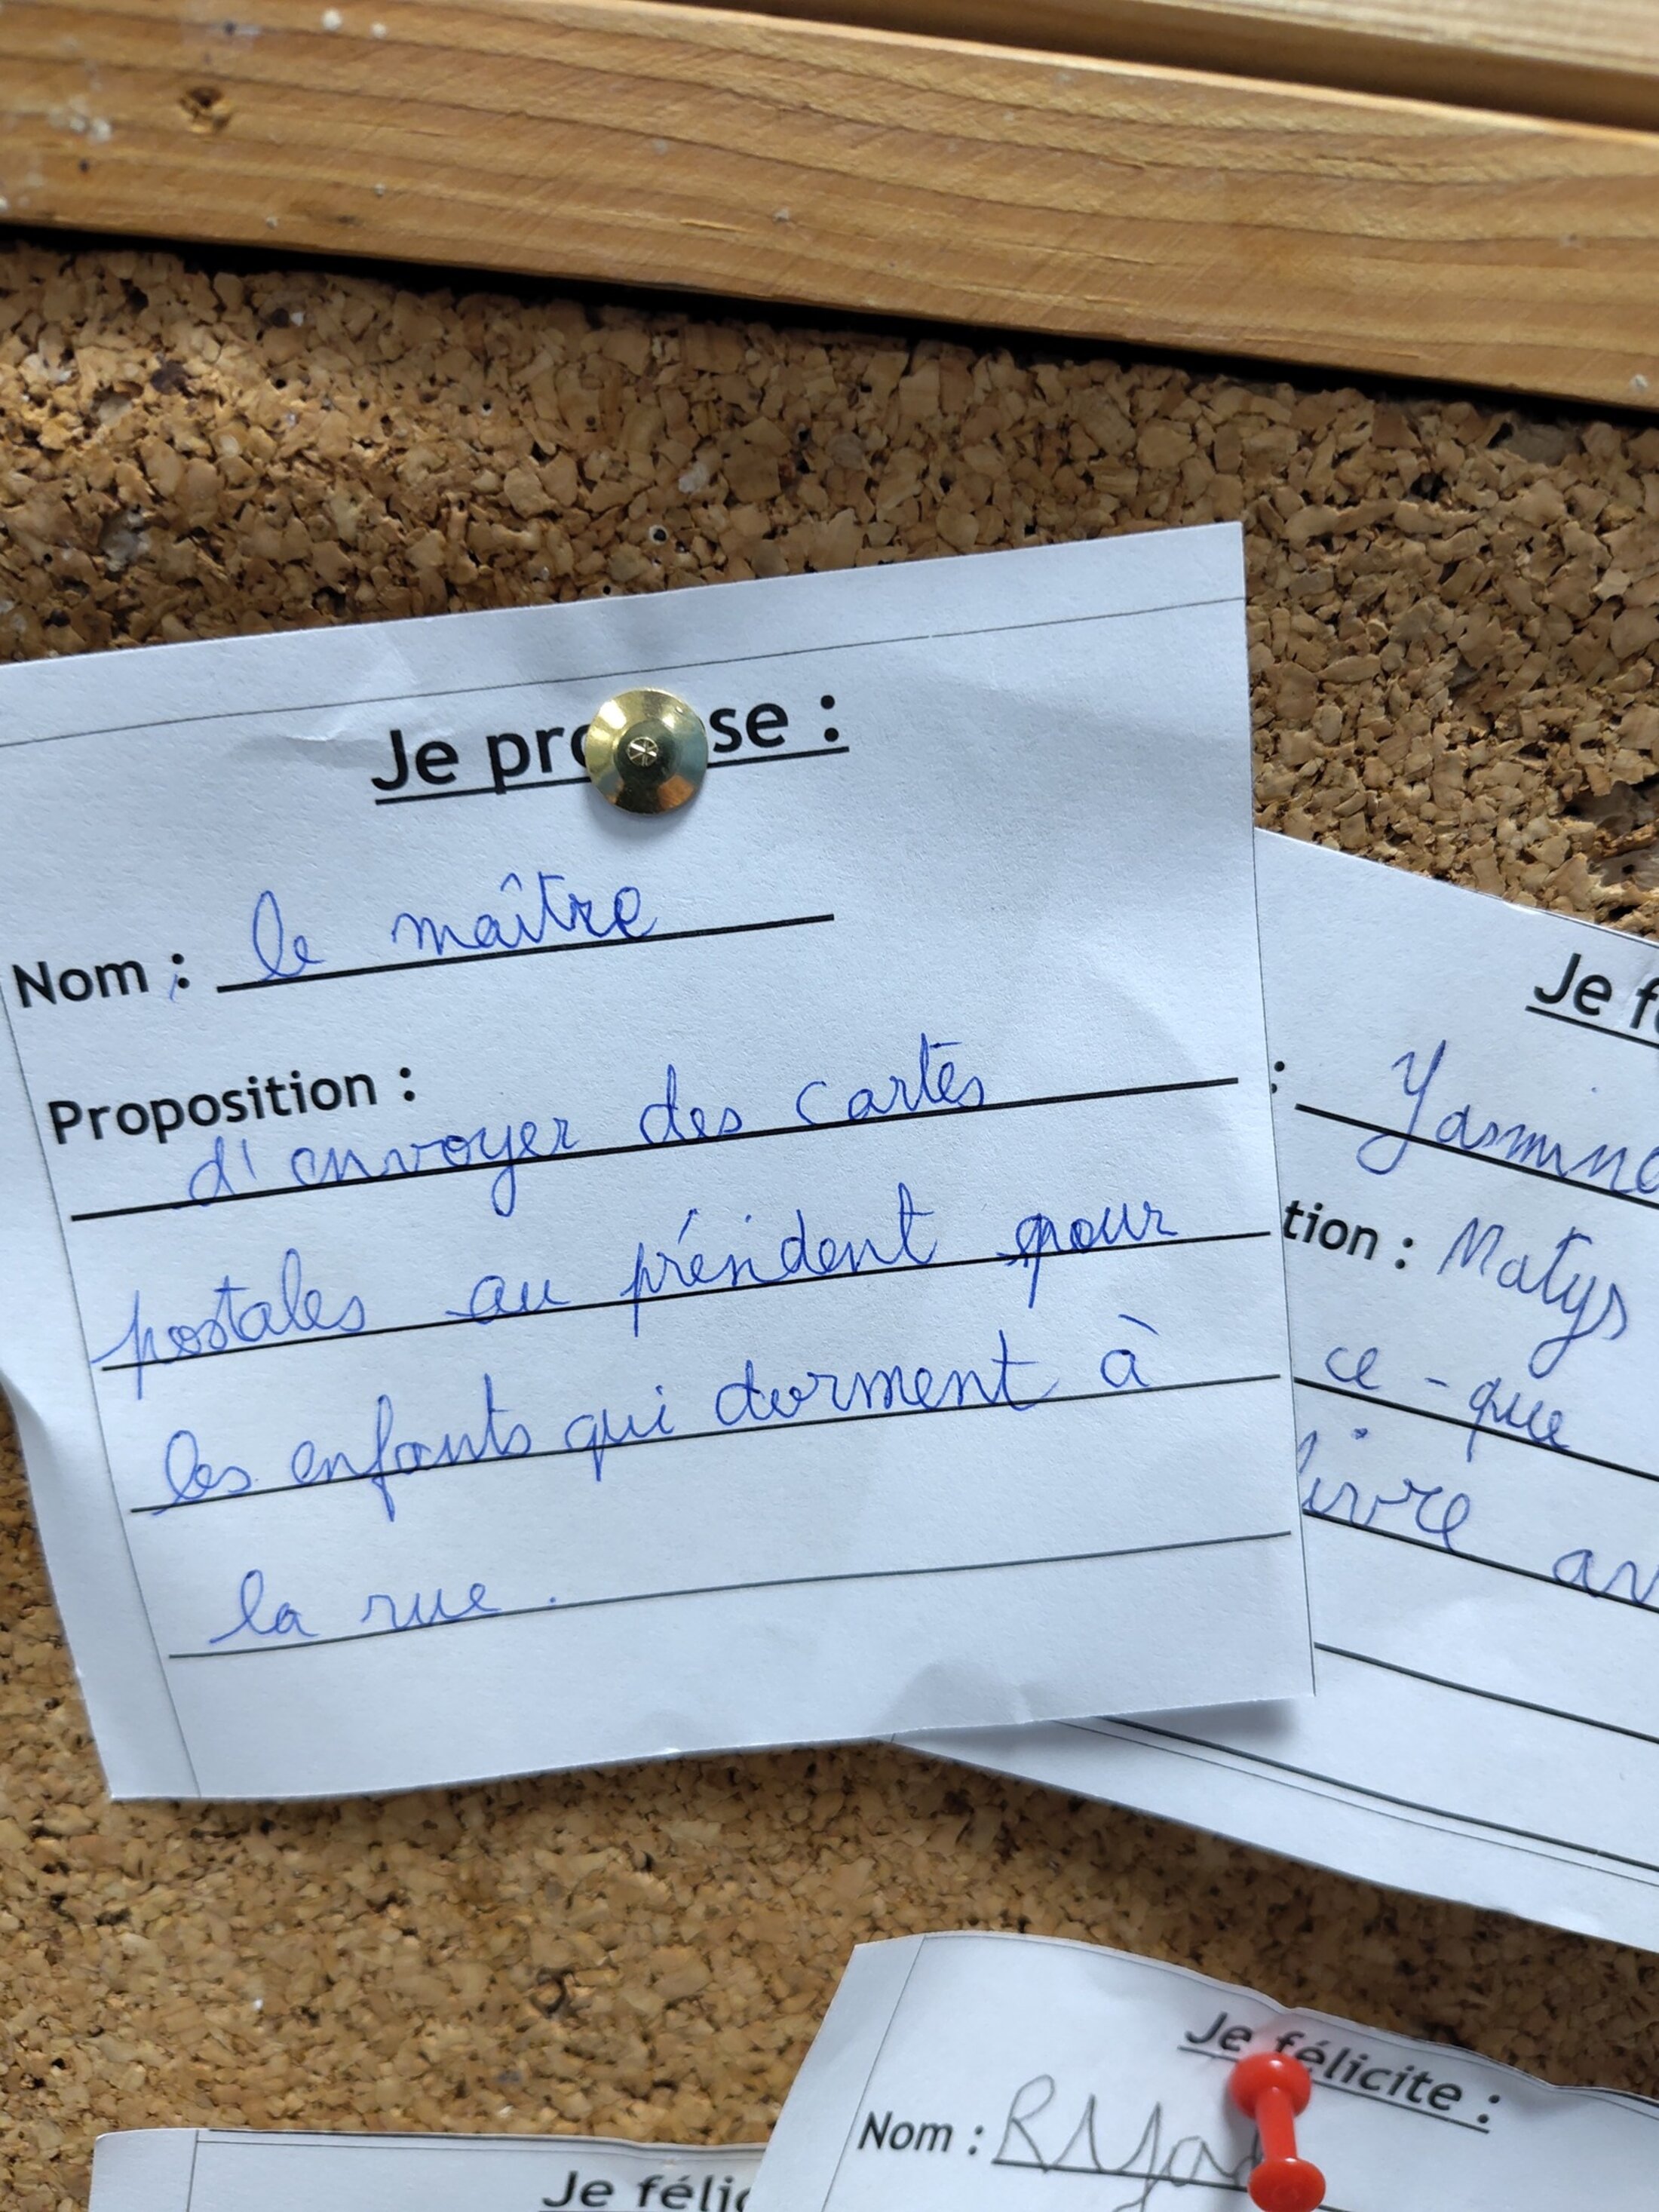 Je propose :
Nom : le maître
Proposition :
d'envoyer des cartes
postales au président pour
les enfants qui dorment à
la rue.
Je f
: Yasmin
tion : Matys
ce-que
livre av
Je félicite :
Nom :
Je félic